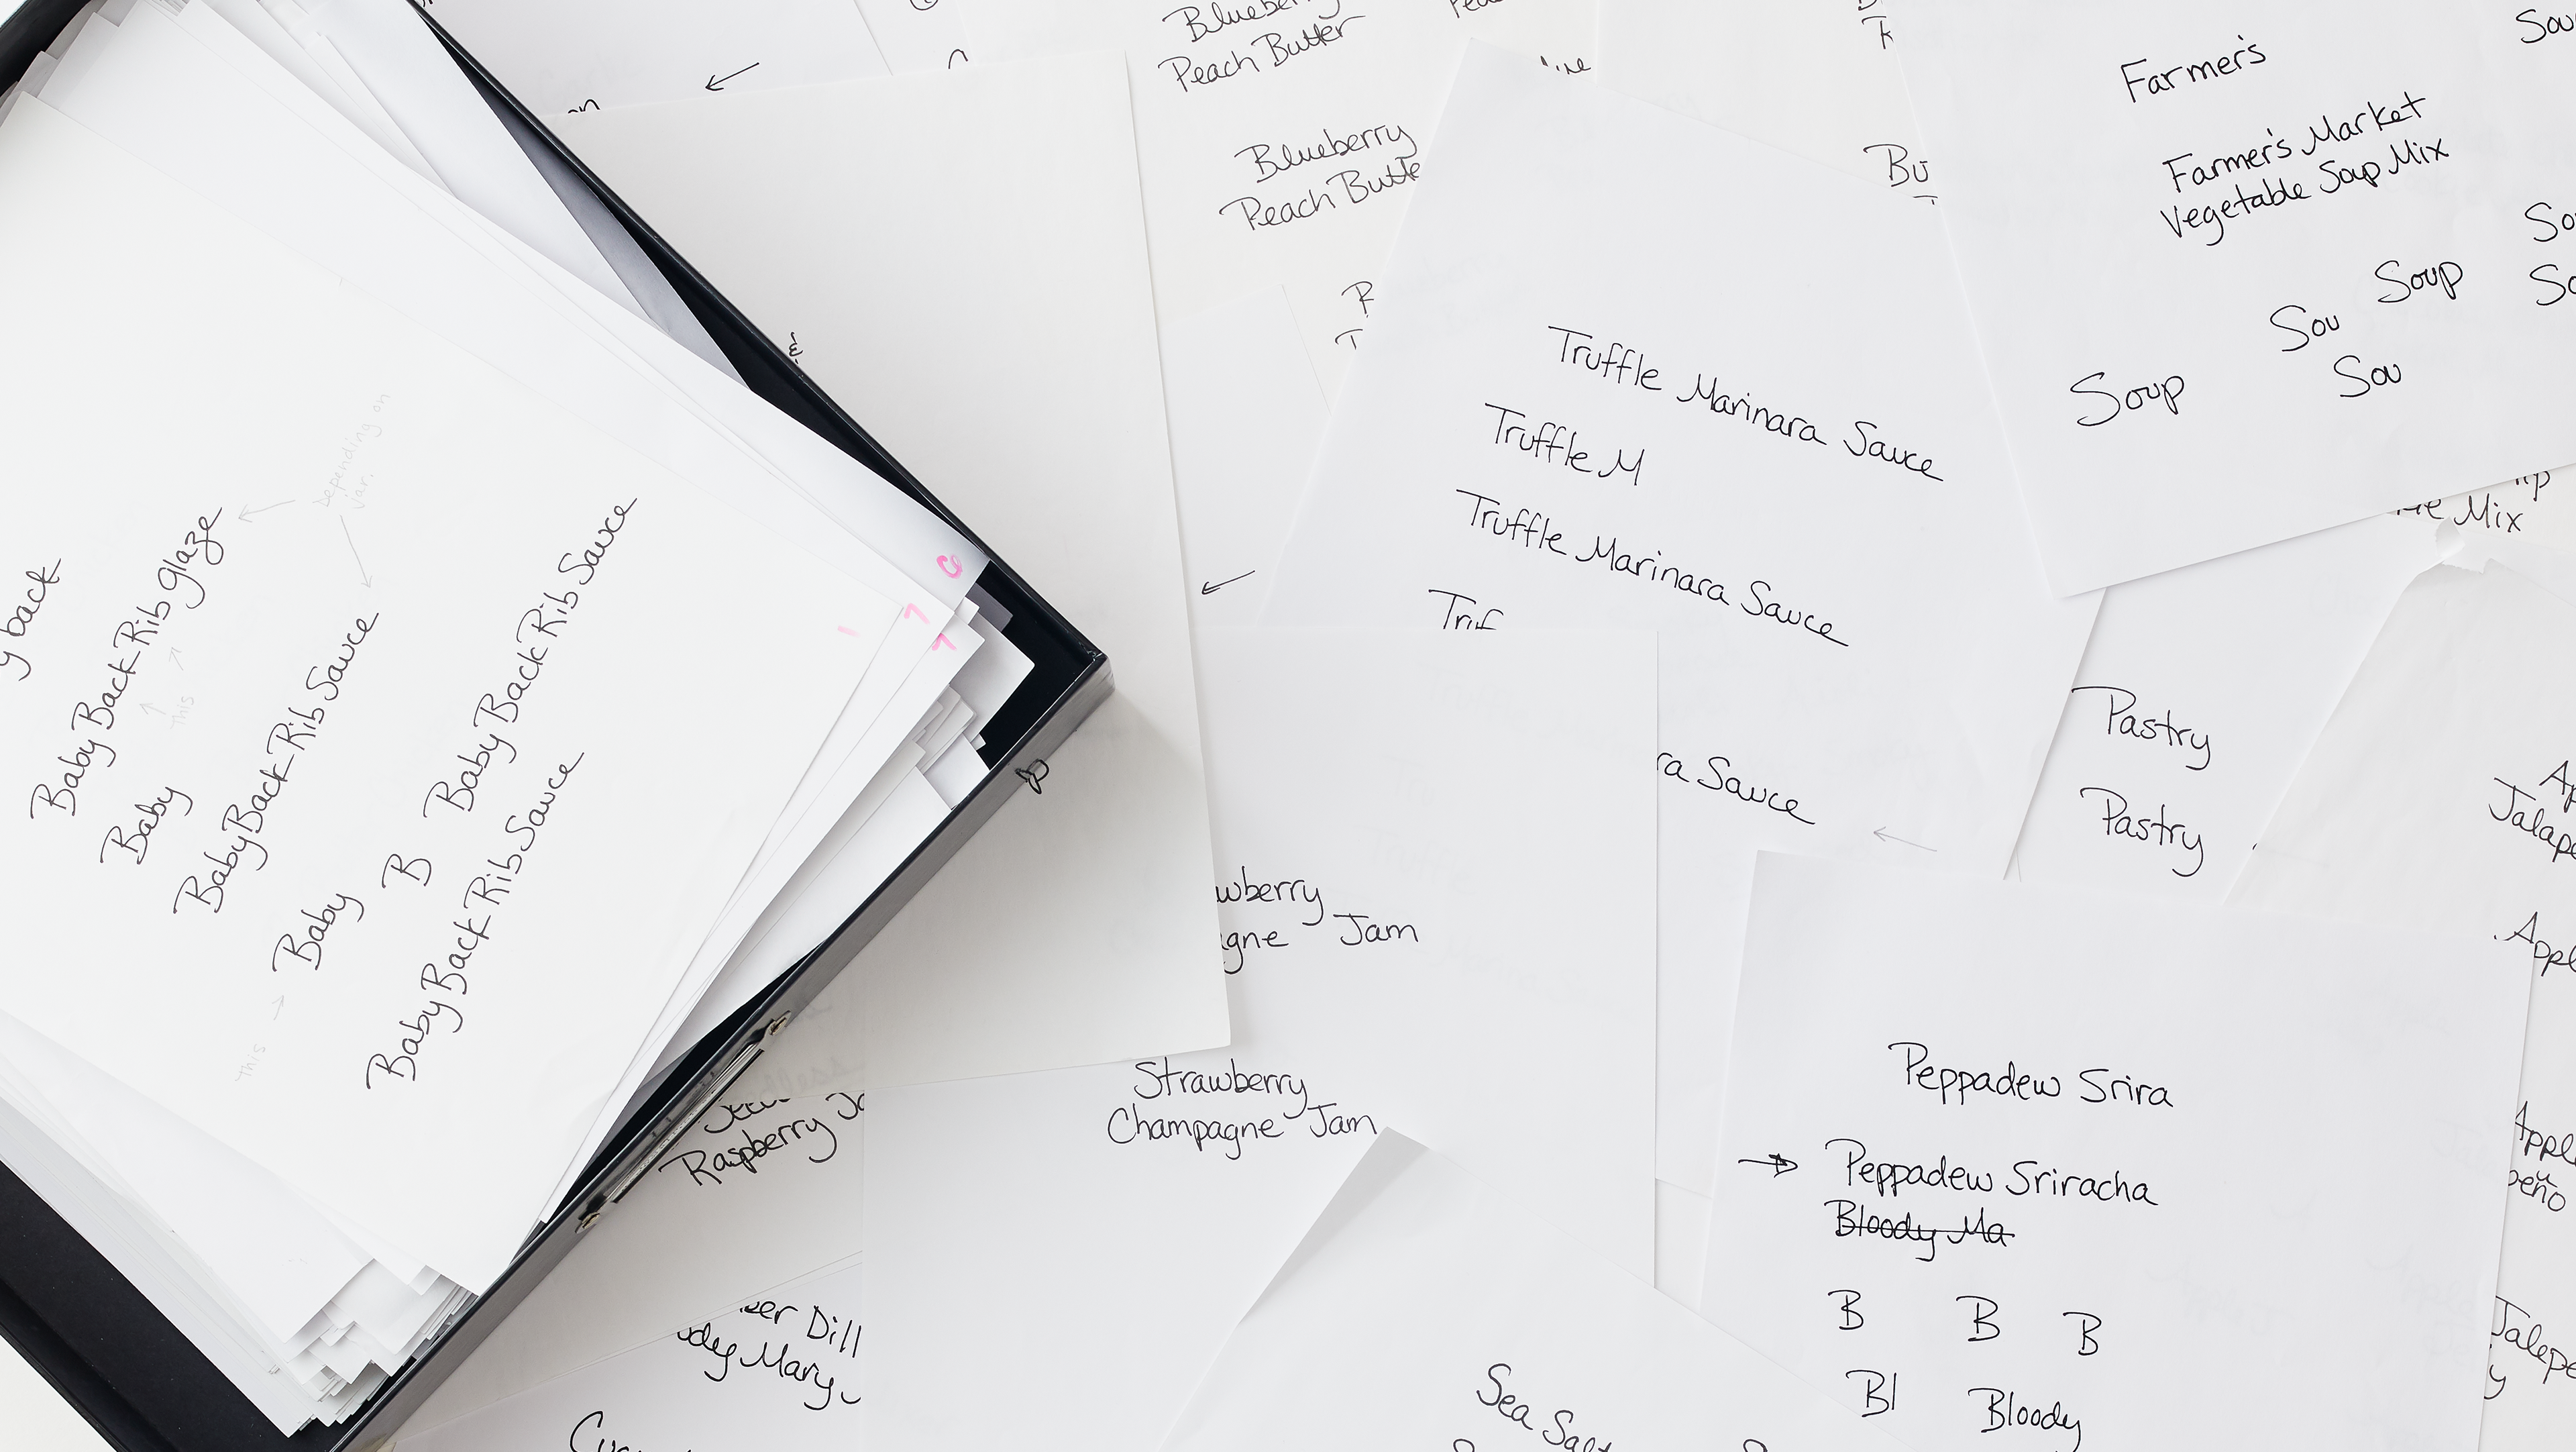 y back
Baby Back Rib Glaze
Baby
Baby Back Rib Sauce
Baby
B
Baby Back Rib Sauce
Baby Back Rib Sauce
Depending on
jar.
This
This
Peach Butter
Blueberry
Peach Butte
&
Truffle Marinara Sauce
Truffle M
Truffle Marinara Sauce
ra Sauce
Farmer's
Farmer's Market
Vegetable Soup Mix
Soup
Sou
Sou
Soup
Mix
Pastry
Pastry
wberry
agne Jam
Strawberry
Champagne Jam
Raspberry Ja
Dill
ody Mary
Peppadew Srira
Peppadew Sriracha
Bloody Ma
B B B
Bl Bloody
Sea Salt
Jalape
Appl
Appl
peño
Jalepe
y